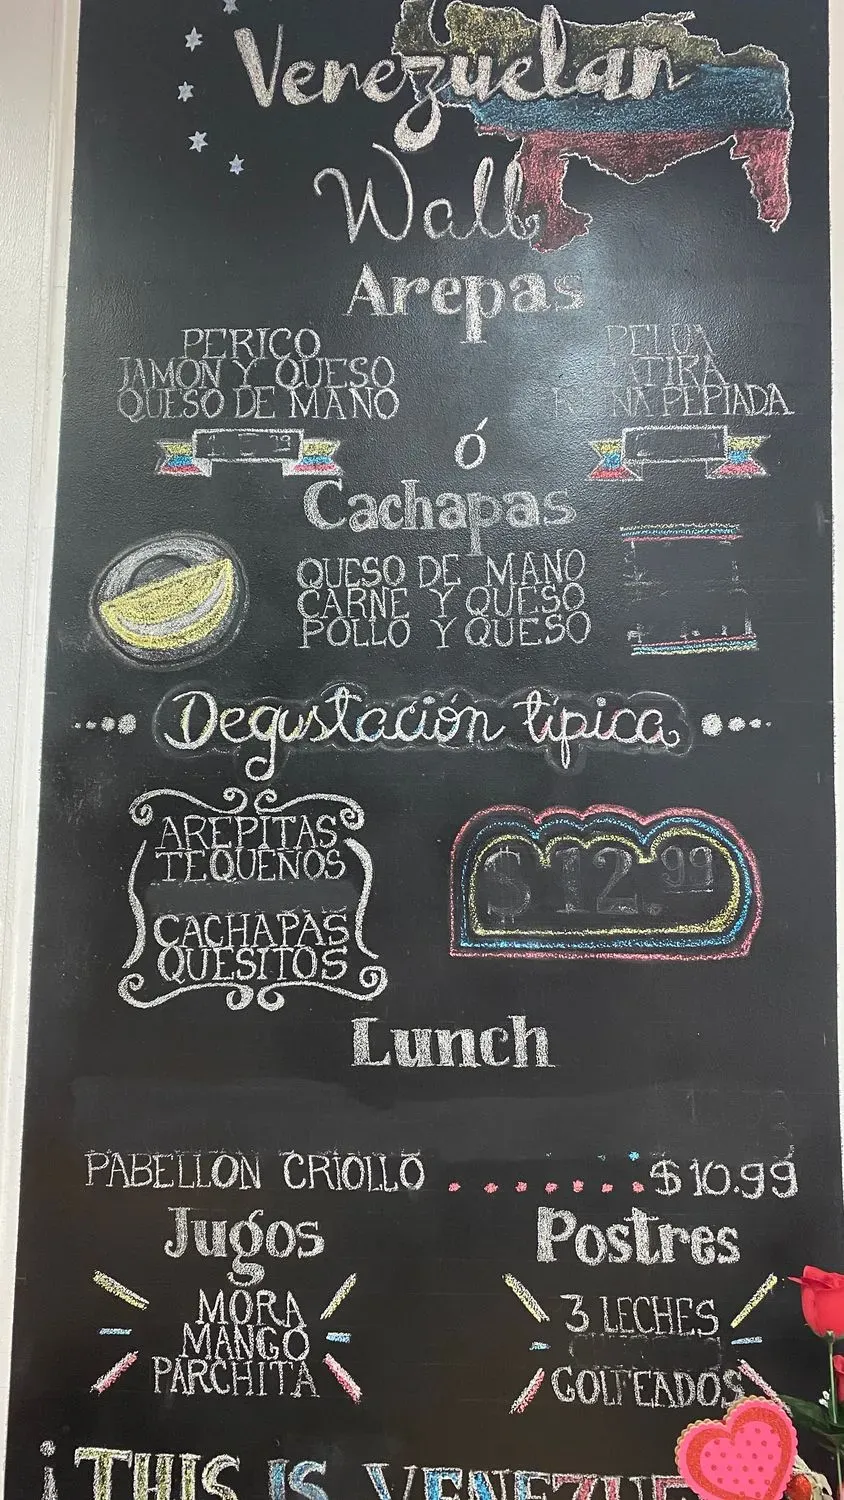 Venezuelan
Wall
Arepas
PERICO
JAMON Y QUESO
QUESO DE MANO
PELUA
PEPIADA
ó
Cachapas
QUESO DE MANO
CARNE Y QUESO
POLLO Y QUESO
Degustación típica
AREPITAS
TEQUEÑOS
CACHAPAS
QUESITOS
$12.99
Lunch
PABELLON CRIOLLO .......$10.99
Jugos
MORA
MANGO
PARCHITA
Postres
3 LECHES
GOLFEADOS
¡THIS IS